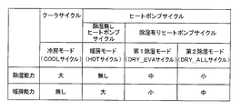 クーラサイクル
ヒートポンプサイクル
除湿無し
ヒートポンプ
サイクル
除湿有りヒートポンプサイクル
冷房モード
(COOLサイクル)
暖房モード
(HOTサイクル)
第1除湿モード
(DRY_EVAサイクル)
第2除湿モード
(DRY_ALLサイクル)
除湿能力 大 無し 中 小
暖房能力 無し 大 小 中